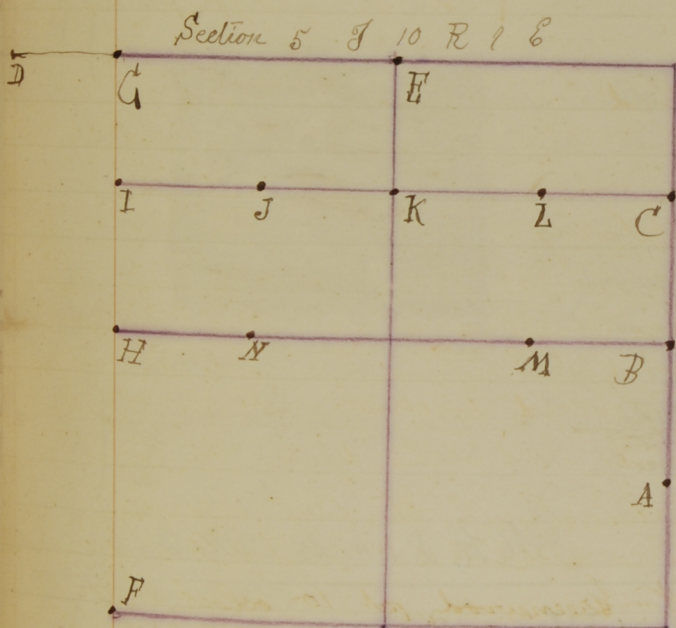 Section 5 T 10 R 1 E
D G E
I J K L C
H N M B
A
F